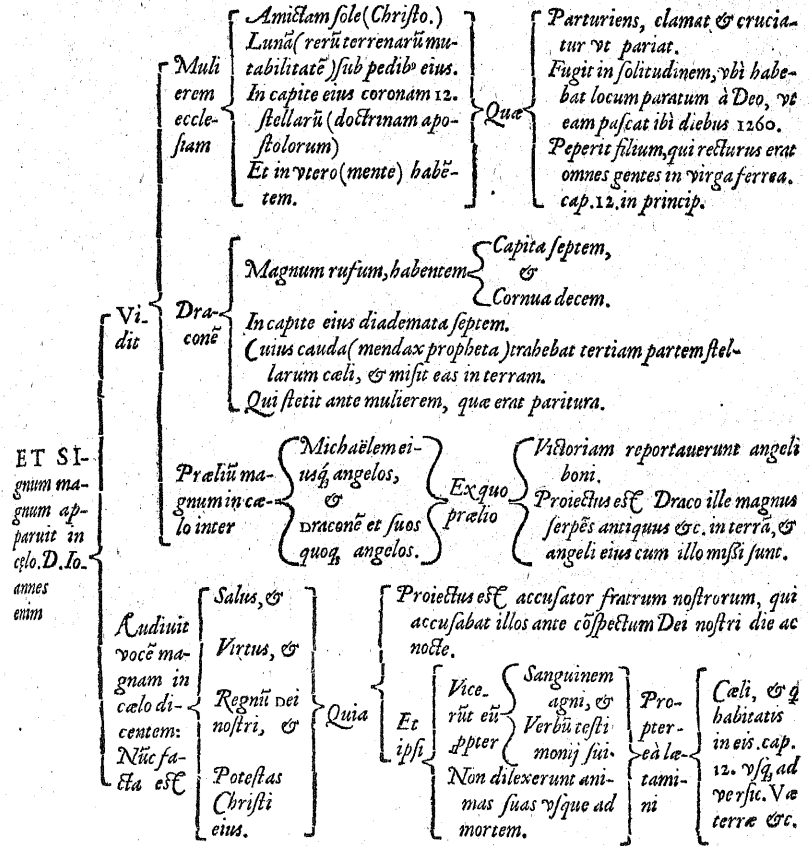 ET SI-
gnum ma-
gnum ap-
paruit in
cęlo. D. Io-
annes
enim
Vi-
dit
Muli
erem
eccle-
ſiam
Amictam ſole (Chriſto.)
Lunã (rerũ terrenarũ mu-
tabilitatẽ) ſub pedibꝰ eius.
In capite eius coronam 12.
ſtellarũ (doctrinam apo-
ſtolorum)
Et in vtero (mente) habẽ-
tem.
Quæ
Parturiens, clamat & crucia-
tur vt pariat.
Fugit in ſolitudinem, vbi habe-
bat locum paratum à Deo, vt
eam paſcat ibi diebus 1260.
Peperit filium, qui recturus erat
omnes gentes in virga ferrea.
cap. 12. in princip.
Dra-
conẽ
Magnum rufum, habentem
Capita ſeptem,
&
Cornua decem.
In capite eius diademata ſeptem.
Cuius cauda (mendax propheta) trahebat tertiam partem ſtel-
larum cæli, & miſit eas in terram.
Qui ſtetit ante mulierem, quæ erat paritura.
Præliũ ma-
gnum in cæ-
lo inter
Michaëlem ei-
uſq́; angelos,
&
Draconẽ et ſuos
quoq; angelos.
Ex quo
prælio
Victoriam reportauerunt angeli
boni.
Proiectus eſt Draco ille magnus
ſerpẽs antiquus &c. in terrã, &
angeli eius cum illo miſſi ſunt.
Audiuit
vocẽ ma-
gnam in
cælo di-
centem:
Nũc fa-
cta eſt
Salus, &
Virtus, &
Regnũ Dei
noſtri, &
Poteſtas
Chriſti
eius.
Quia
Proiectus eſt accuſator fratrum noſtrorum, qui
accuſabat illos ante cõſpectum Dei noſtri die ac
nocte.
Et
ipſi
Vice-
rũt eũ
ꝓpter
Sanguinem
agni, &
Verbũ teſti
monij ſui.
Non dilexerunt ani-
mas ſuas vſque ad
mortem.
Pro-
pter-
eà læ-
tami-
ni
Cæli, & q̃
habitatis
in eis. cap.
12. vſq; ad
verſic. Væ
terræ &c.